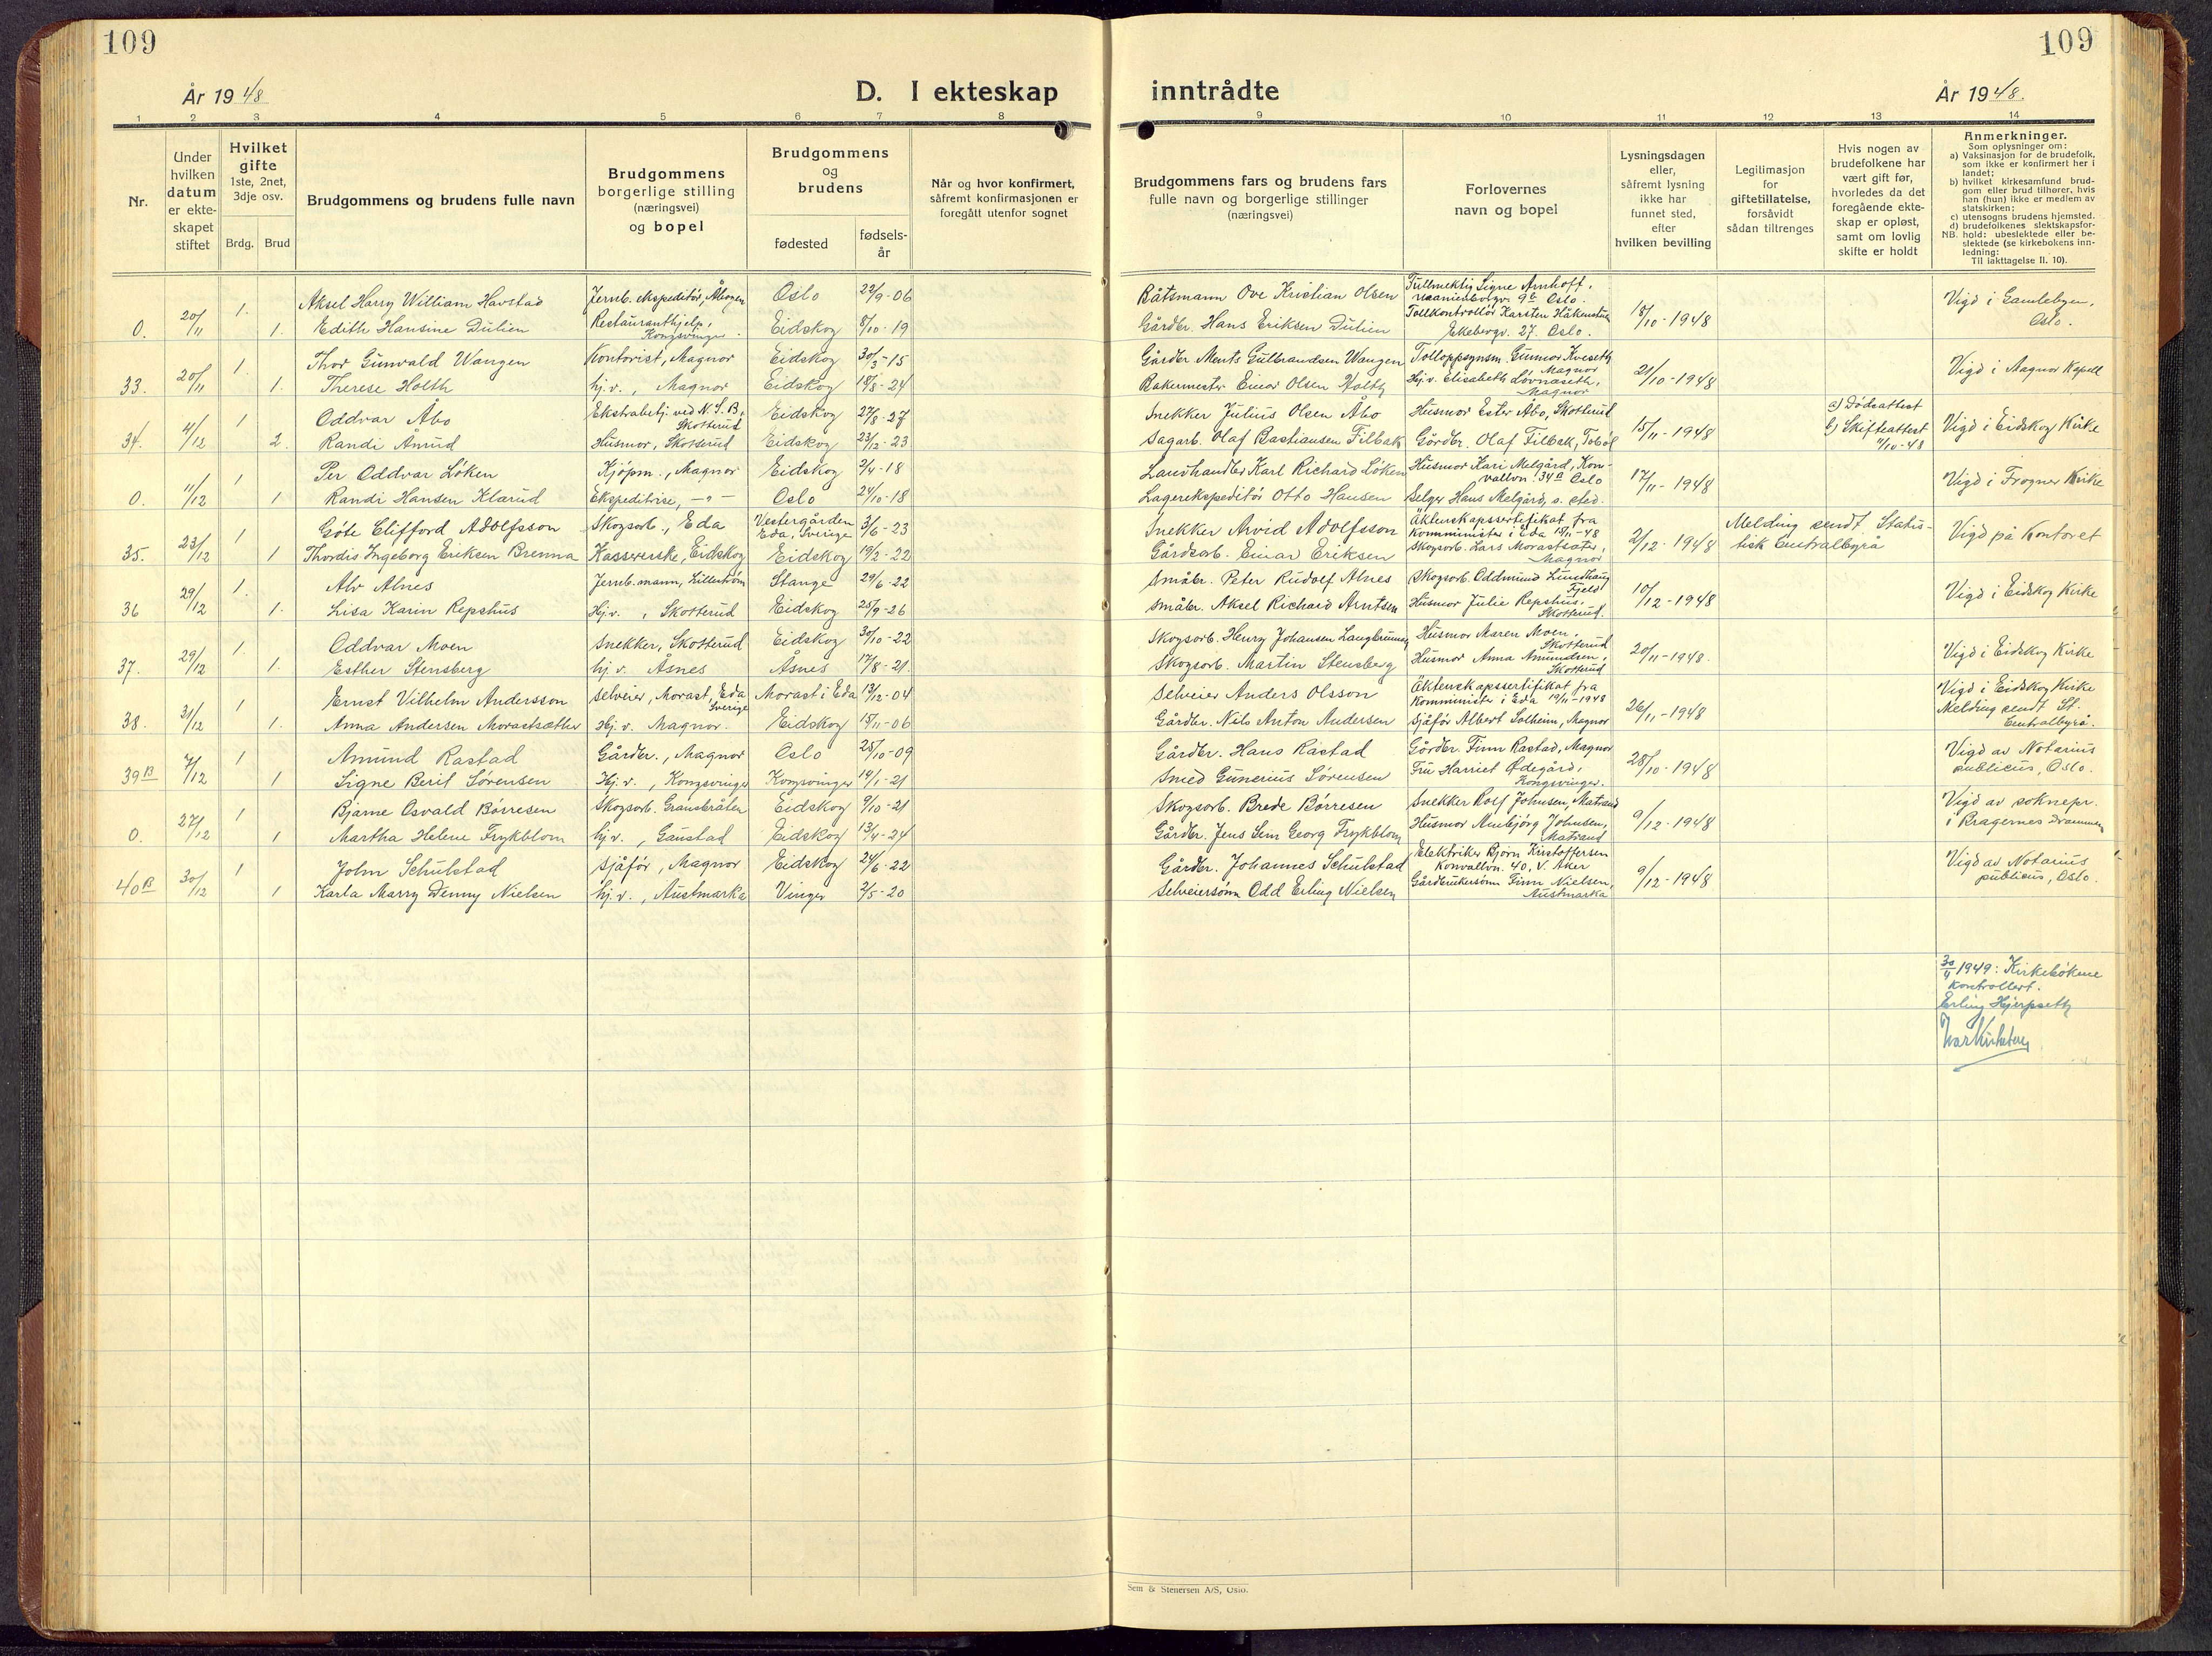 109
109
År 1948
D. I ekteskap inntrådte
År 1948.
1 2 3 4 5 6 7 8 9 10 11 12 13 14
Nr.
Under hvilken datum er ekteskapet stiftet
Hvilket gifte
1ste, 2net, 3dje osv.
Brdg. Brud
Brudgommens og brudens fulle navn
Brudgommens borgerlige stilling (næringsvei) og bopel
Brudgommens og brudens
fødested
fødsels-år
Når og hvor konfirmert, såfremt konfirmasjonen er foregått utenfor sognet
Brudgommens fars og brudens fars fulle navn og borgerlige stillinger (næringsvei)
Forlovernes navn og bopel
Lysningsdagen eller, såfremt lysning ikke har funnet sted, efter hvilken bevilling
Legitimasjon for giftetillatelse, forsåvidt sådan tiltrenges
Hvis nogen av brudefolkene har vært gift før, hvorledes da det foregående ekteskap er opløst, samt om lovlig skifte er holdt
Anmerkninger.
Som oplysninger om:
a) Vaksinasjon for de brudefolk, som ikke er konfirmert her i landet;
b) hvilket kirkesamfund brudgom eller brud tilhører, hvis han (hun) ikke er medlem av statskirken;
c) utensogns brudens hjemsted.
d) brudefolkenes slektskapsforhold: ubeslektede eller beslektede (se kirkebokens innledning:
NB. Til iakttagelse II. 10).
0. 20/11 1. Aksel Harry William Havstad Jernb. ekspeditør, Åbogen Oslo 22/9-06 Båtsmann Ove Kristian Olsen Fullmektig Signe Arnhoff, 9b Oslo. 18/10-1948 Vigd i Gamlebyen, Oslo.
1. Edith Hansine Dulien Restauranthjelp, Kongsvinger Eidskog 8/10-19 Gårdbr. Hans Eriksen Dulien Tollkontrollør Karsten Håkenstun Ekebergv. 27. Oslo.
33. 20/11 1. Thor Gunvald Wangen Kontorist, Magnor Eidskog 30/3-15 Gårdbr. Ments Gulbrandsen Wangen Tolloppsynsm. Gunnar Kveseth Magnor 21/10-1948 Vigd i Magnor Kapell
1. Therese Holth hj.v., Magnor Eidskog 18/8-24 Bakermester Einar Olsen Holth Hj.v. Elisabeth Løvnaseth, Magnor
34. 4/12 1 Oddvar Åbo Ekstrabetj. ved N.S.B, Skotterud Eidskog 27/8-27 Snekker Julius Olsen Åbo Husmor Ester Åbo, Skotterud 15/11-1948 a) Dødsattest Vigd i Eidskog Kirke
2. Randi Ånrud Husmor, Skotterud Eidskog 23/12-23 Sagarb. Olaf Bastiansen Filbak Gårdbr. Olaf Filbak, Tobøl b) Skifteattest 4/10-48
0. 11/12 1 Per Oddvar Løken Kjøpm., Magnor Eidskog 2/4-18 Landhandler Karl Richard Løken Husmor Kari Melgård, Konvallvn. 34a Oslo 17/11-1948 Vigd i Frogner Kirke
1 Randi Hansen Klarud Ekspeditrise, -"- Oslo 24/10-18 Lagerekspeditør Otto Hansen Selger Hans Melgård, s. sted.
35. 23/12 1 Gøte Clifford Adolfsson Skogsarb., Eda Vestergården Eda, Sverige 3/6-23 Snekker Arvid Adolfsson Äktenskapssertifikat fra Komminister i Eda 18/11-48 2/12-1948 Melding sendt Statistisk Centralbyrå Vigd på Kontoret
1 Thordis Ingeborg Eriksen Brenna Kassererske, Eidskog Eidskog 19/2-22 Gårdsarb. Einar Eriksen Skogsarb. Lars Morastsæter, Magnor
36 29/12 1. Alv Alnes Jernb.mann, Lillestrøm Stange 29/6-22 Småbr. Peter Rudolf Alnes Skogsarb. Oddmund Lundhaug Fjeld 10/12-1948 Vigd i Eidskog Kirke
1. Lisa Karin Repshus Hj.v., Skotterud Eidskog 25/9-26 Småbr. Aksel Richard Arntsen Husmor Julie Repshus, Skotterud.
37. 29/12 1. Oddvar Moen Snekker, Skotterud Eidskog 30/10-22 Skogsarb. Henry Johansen Langbrunnen Husmor Maren Moen, Skotterud 20/11-1948. Vigd i Eidskog Kirke
1. Esther Stensberg hj.v. Åsnes Åsnes 17/8-21. Skogsarb. Martin Stensberg Husmor Anna Amundsen, Skotterud
38. 31/12 1 Ernst Vilhelm Andersson Selveier, Morast, Eda Sverige Morast i Eda 13/12-04 Selveier Anders Olsson Äktenskapssertifikat fra Komminister i Eda 19/11-1948 26/11-1948 Vigd i Eidskog Kirke Melding sendt St. Centralbyrå.
1. Anna Andersen Morastsæther Hj.v. Magnor. Eidskog 15/11-06 Gårdbr. Nils Anton Andersen Sjåfør Albert Solheim, Magnor
39B 7/12 1 Amund Rastad Gårdbr., Magnor Oslo 25/10-09 Gårdbr. Hans Rastad Gårdbr. Finn Rastad, Magnor 28/10-1948 Vigd av Notarius publicus, Oslo.
1 Signe Berit Sørensen Hj.v., Kongsvinger Kongsvinger 19/1-21 Smed Gunerius Sørensen Fru Harriet Ødegård, Kongsvinger.
0. 27/12 1 Bjarne Osvald Børresen Skogsarb. Gransbråten Eidskog 9/10-21 Skogsarb. Brede Børresen Snekker Rolf Johnsen, Matrand 9/12-1948 Vigd av soknepr. i Bragernes Drammen
1 Martha Helene Frykblom hj.v., Gaustad Eidskog 13/4-24 Gårdbr. Jens Sem Georg Frykblom Husmor Aasbjørg Johnsen, Matrand
40B 30/12 1 John Schulstad Sjåfør, Magnor Eidskog 24/6-22 Gårdbr. Johannes Schulstad Elektriker Bjørn Kirstoffersen Konvallvn. 40, V. Aker 9/12-1948 Vigd av Notarius publicus, Oslo.
1 Karla Marry Denny Nielsen hj.v., Austmarka Vinger 2/5-20 Selveiersønn Odd Erling Nielsen Gårdbrukersønn Finn Nielsen, Austmarka
30/4 1949: Kirkebøkene
kontrollert.
Erling Hjerpseth
Sem & Stenersen A/S, Oslo.